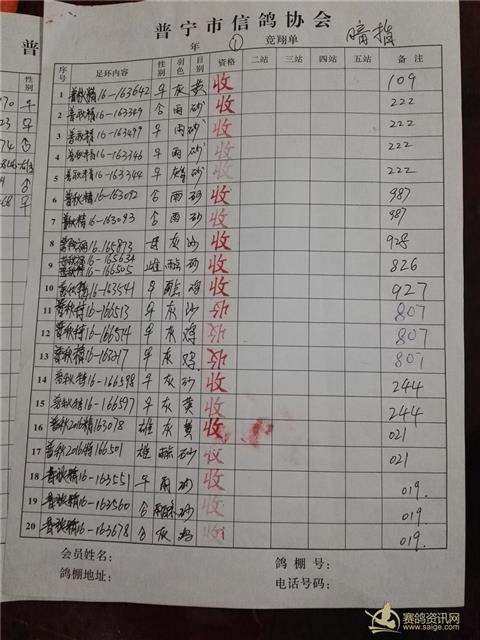 普宁市信鸽协会
年 ① 竞翔单 暗插
序号 足环内容 性别 羽色 目别 资格 二站 三站 四站 五站 备注
1 普秋精16-163642 早 灰 黄 收 109
2 普秋精16-163349 合 雨 砂 收 222
3 普秋精16-163499 早 雨 砂 收 222
4 普秋精16-163346 早 雨 砂 收 222
5 普秋精16-163344 早 砂 收 222
6 普秋精16-163092 合 雨 砂 收 987
7 普秋精16-163093 合 雨 砂 收 987
8 16.165873 灰 沙 收 928
9 16-165634 16-166505 雌 砂 收 826
10 普秋精16-163541 早 鸡 收 927
11 普秋特16-166513 早 灰 沙 收 807
12 普秋特16-166514 早 灰 鸡 收 807
13 普秋精16-163217 早 灰 鸡 收 807
14 普秋特16-166598 早 灰 砂 收 244
15 普秋特16-166597 早 灰 黄 收 244
16 普秋2016精163078 雄 灰 黄 收 021
17 普秋2016特166501 雄 砂 收 021
18 普秋精16-163551 早 雨 砂 收 019.
19 普秋精16-163560 合 砂 收 019
20 普秋精16-163678 合 灰 鸡 收 019.
会员姓名： 鸽棚号：
鸽棚地址： 电话号码：
性别
赛鸽资讯网
www.saige.com